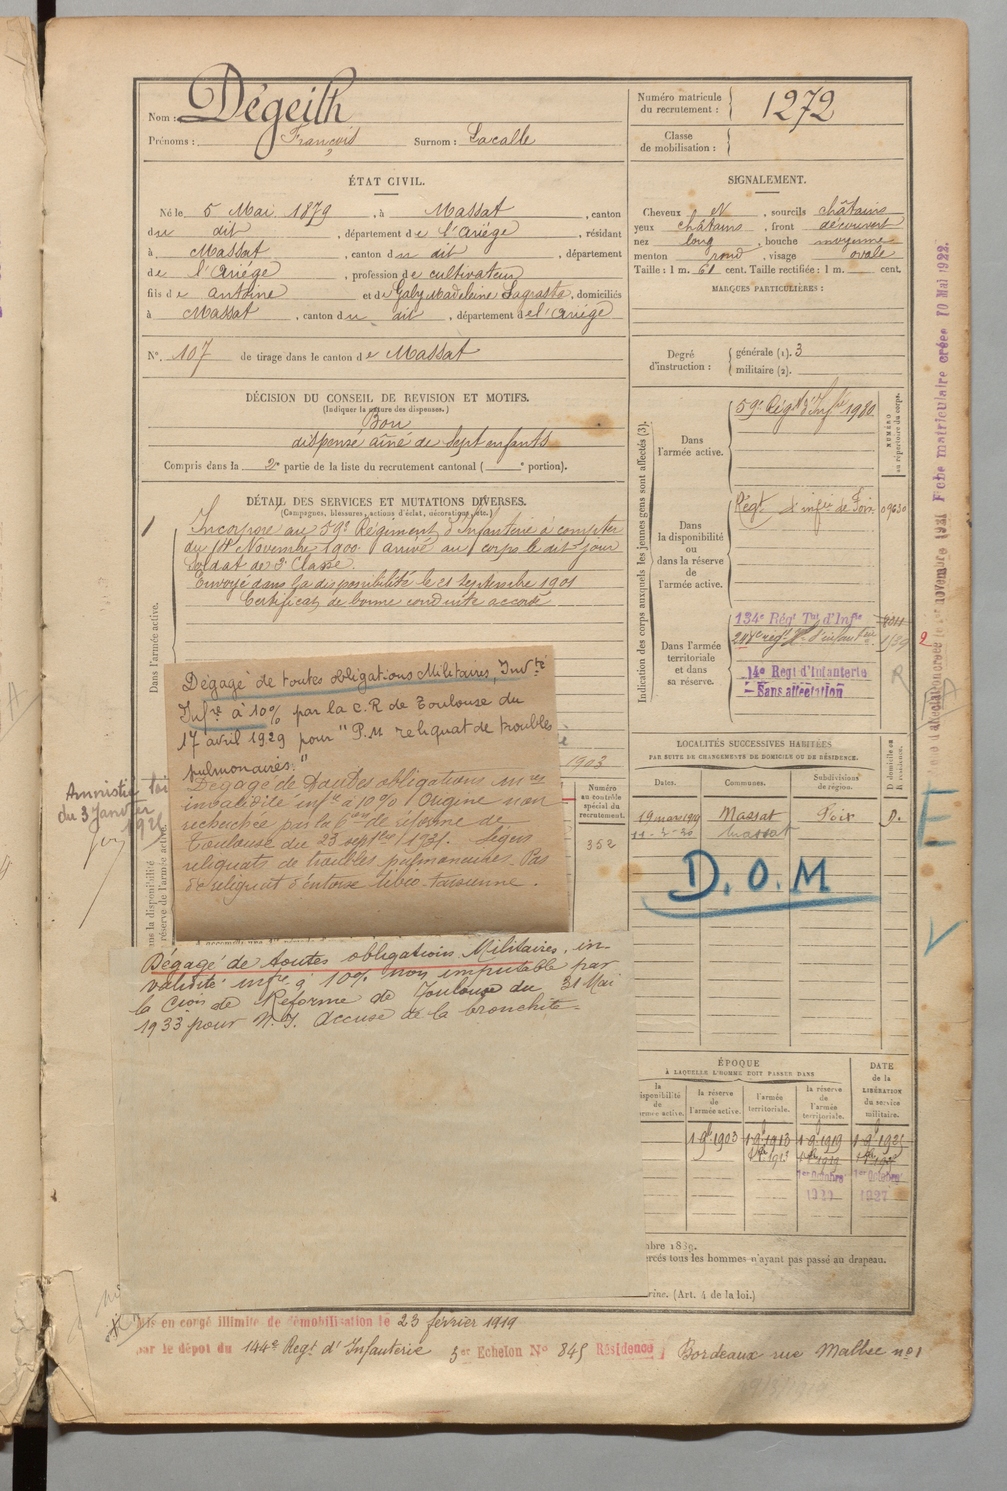 Nom : Dégeilh
Prénoms : François Surnom : Lacalle
Numéro matricule du recrutement : 1272
Classe de mobilisation :
ÉTAT CIVIL.
Né le 5 Mai 1879, à Massat, canton
du dit, département de l'Ariège, résidant
à Massat, canton du dit, département
de l'Ariège, profession de cultivateur
fils de Antoine et de Galy Madeleine Lagrasta, domiciliés
à Massat, canton du dit, département de l'Ariège
N° 107 de tirage dans le canton de Massat
SIGNALEMENT.
Cheveux N, sourcils châtains
yeux châtains, front découvert
nez long, bouche moyenne
menton rond, visage ovale
Taille : 1 m. 61 cent. Taille rectifiée : 1 m. cent.
MARQUES PARTICULIÈRES :
Degré d'instruction : générale (1). 3
militaire (2).
DÉCISION DU CONSEIL DE REVISION ET MOTIFS.
(Indiquer la nature des dispenses.)
Bon
dispensé aîné de sept enfants
Compris dans la 2e partie de la liste du recrutement cantonal ( e portion).
DÉTAIL DES SERVICES ET MUTATIONS DIVERSES.
(Campagnes, blessures, actions d'éclat, décorations, etc.)
Dans l'armée active.
Incorporé au 59e Régiment d'Infanterie à compter
du Novembre 1900 arrivé au corps le dit jour
Soldat de 2e Classe.
Envoyé dans la disponibilité le 21 Septembre 1901
Certificat de bonne conduite accordé
Dégagé de toutes obligations Militaires, Invté
Infre à 10% par la C.R de Toulouse du
17 avril 1929 pour "P.M reliquat de troubles
pulmonaires."
Dégagé de toutes obligations mres
invalidité infre à 10% Origine non
recherchée par la 6e Con de réforme de
Toulouse du 23 septbre 1931. Légers
reliquats de troubles pulmonaires. Pas
de reliquat d'entorse tibio-tarsienne.
1903
Amnistié loi
du 3 Janvier
1925
Dégagé de toutes obligations Militaires, in-
validité infre à 10% non imputable par
la Cion de Réforme de Toulouse du 31 Mai
1933 pour N.I. Accuse de la bronchite.
Indication des corps auxquels les jeunes gens sont affectés (3).
NUMÉRO au répertoire du corps.
Dans l'armée active.
59e Régt d'Infie 1980
Dans la disponibilité ou dans la réserve de l'armée active.
Régt d'infie de Foix 09630
Dans l'armée territoriale et dans sa réserve.
134e Régt Tal d'Infie
14e Regt d'Infanterie
- Sans affectation
LOCALITÉS SUCCESSIVES HABITÉES
PAR SUITE DE CHANGEMENTS DE DOMICILE OU DE RÉSIDENCE.
Dates. Communes. Subdivisions de région. D domicile ou R résidence.
19 mars 1919 Massat Foix D.
Massat
D.O.M
Numéro au contrôle spécial du recrutement.
352
ÉPOQUE
À LAQUELLE L'HOMME DOIT PASSER DANS
DATE de la LIBÉRATION du service militaire.
la disponibilité de l'armée active. la réserve de l'armée active. l'armée territoriale. la réserve de l'armée territoriale.
1 9bre 1903 1 9bre 1913 1 9bre 1919
1er Octobre 1er Octobre
1927
mbre 1889.
ercés tous les hommes n'ayant pas passé au drapeau.
rine. (Art. 4 de la loi.)
Fiche matriculaire créée 10 Mai 1922.
Mis en congé illimité de démobilisation le 23 février 1919
par le dépot du 144e Regt d'Infanterie 3er Echelon N° 845 Résidence Bordeaux rue Malbec n°1